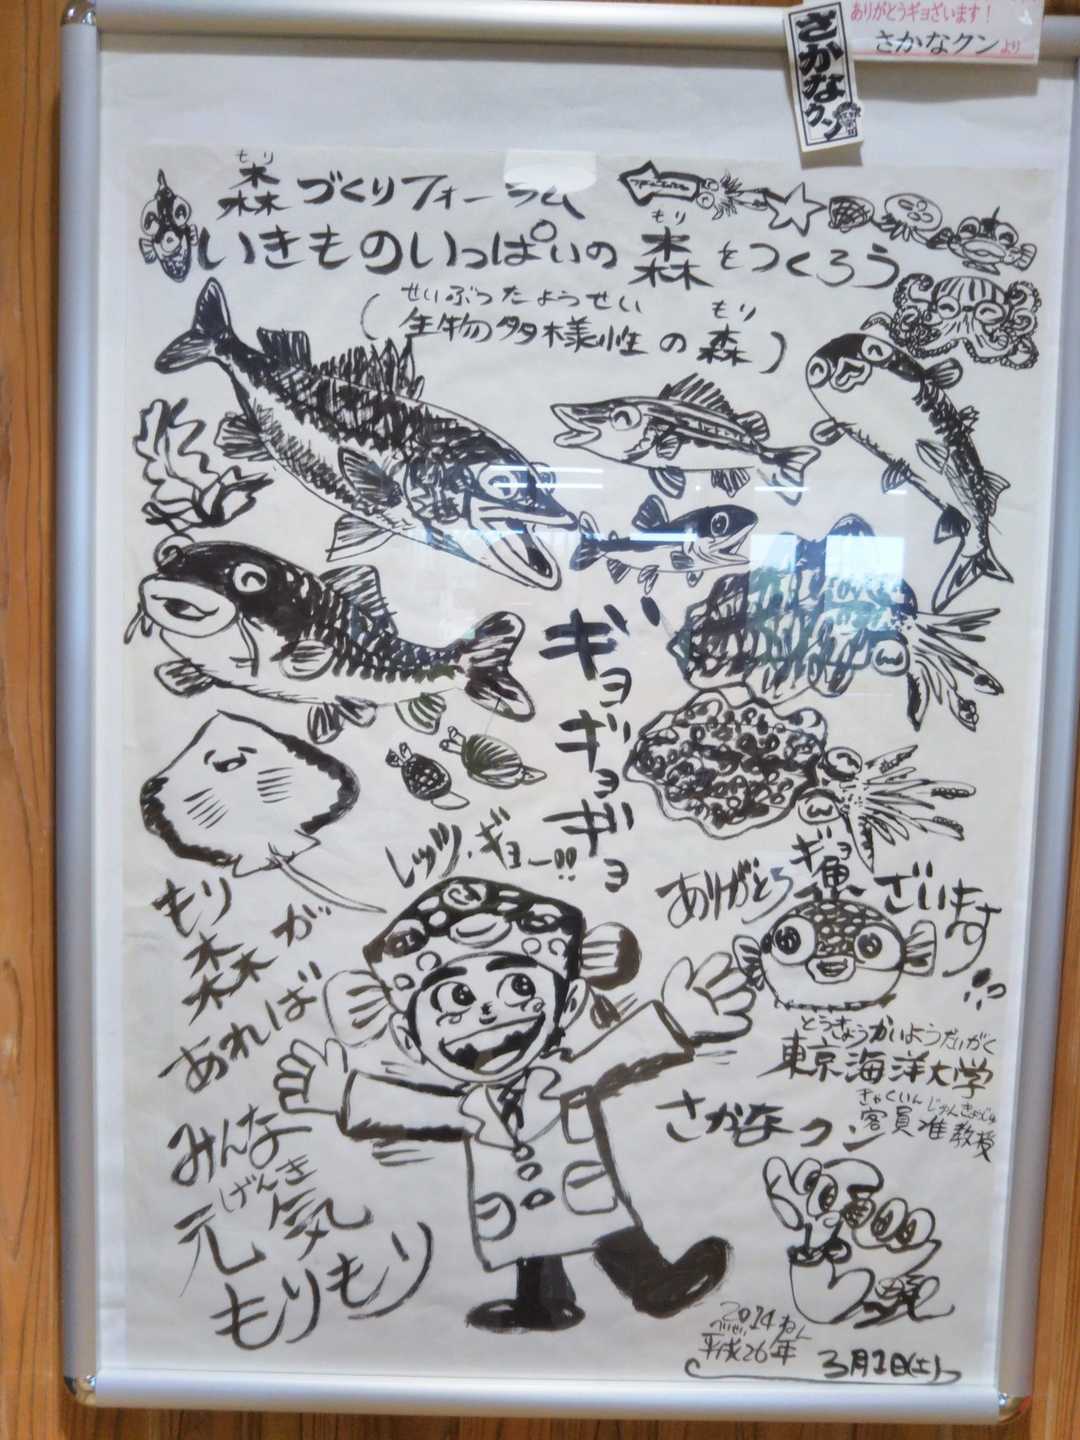 ありがとうギョざいます！
さかなクンより
さかなクン
もり
森づくりフォーラム
もり
いきものいっぱいの森をつくろう
せいぶつたようせい もり
(生物多様性の森)
ギョギョギョ
レッツ・ギョー!!
ギョ
ありがとう魚ざいます!!
もり
森が
あれば
みんな
げんき
元気
もりもり
とうきょうかいようだいがく
東京海洋大学
きゃくいんじゅんきょうじゅ
客員准教授
さかなクン
2014ねん
へいせい
平成26年
3月1日(土)